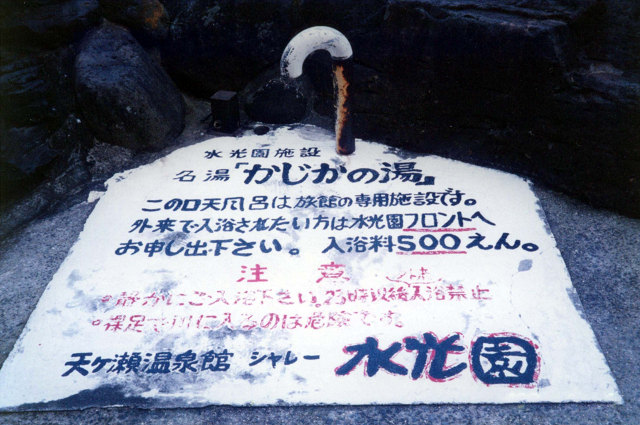 水光園施設
名湯「かじかの湯」
この口天風呂は旅館の専用施設です。
外来で入浴されたい方は水光園フロントへ
お申し出下さい。入浴料500えん。
注意
・静かにご入浴下さい。23時以後入浴禁止
・裸足で川に入るのは危険です。
天ヶ瀬温泉館 シャレー 水光園